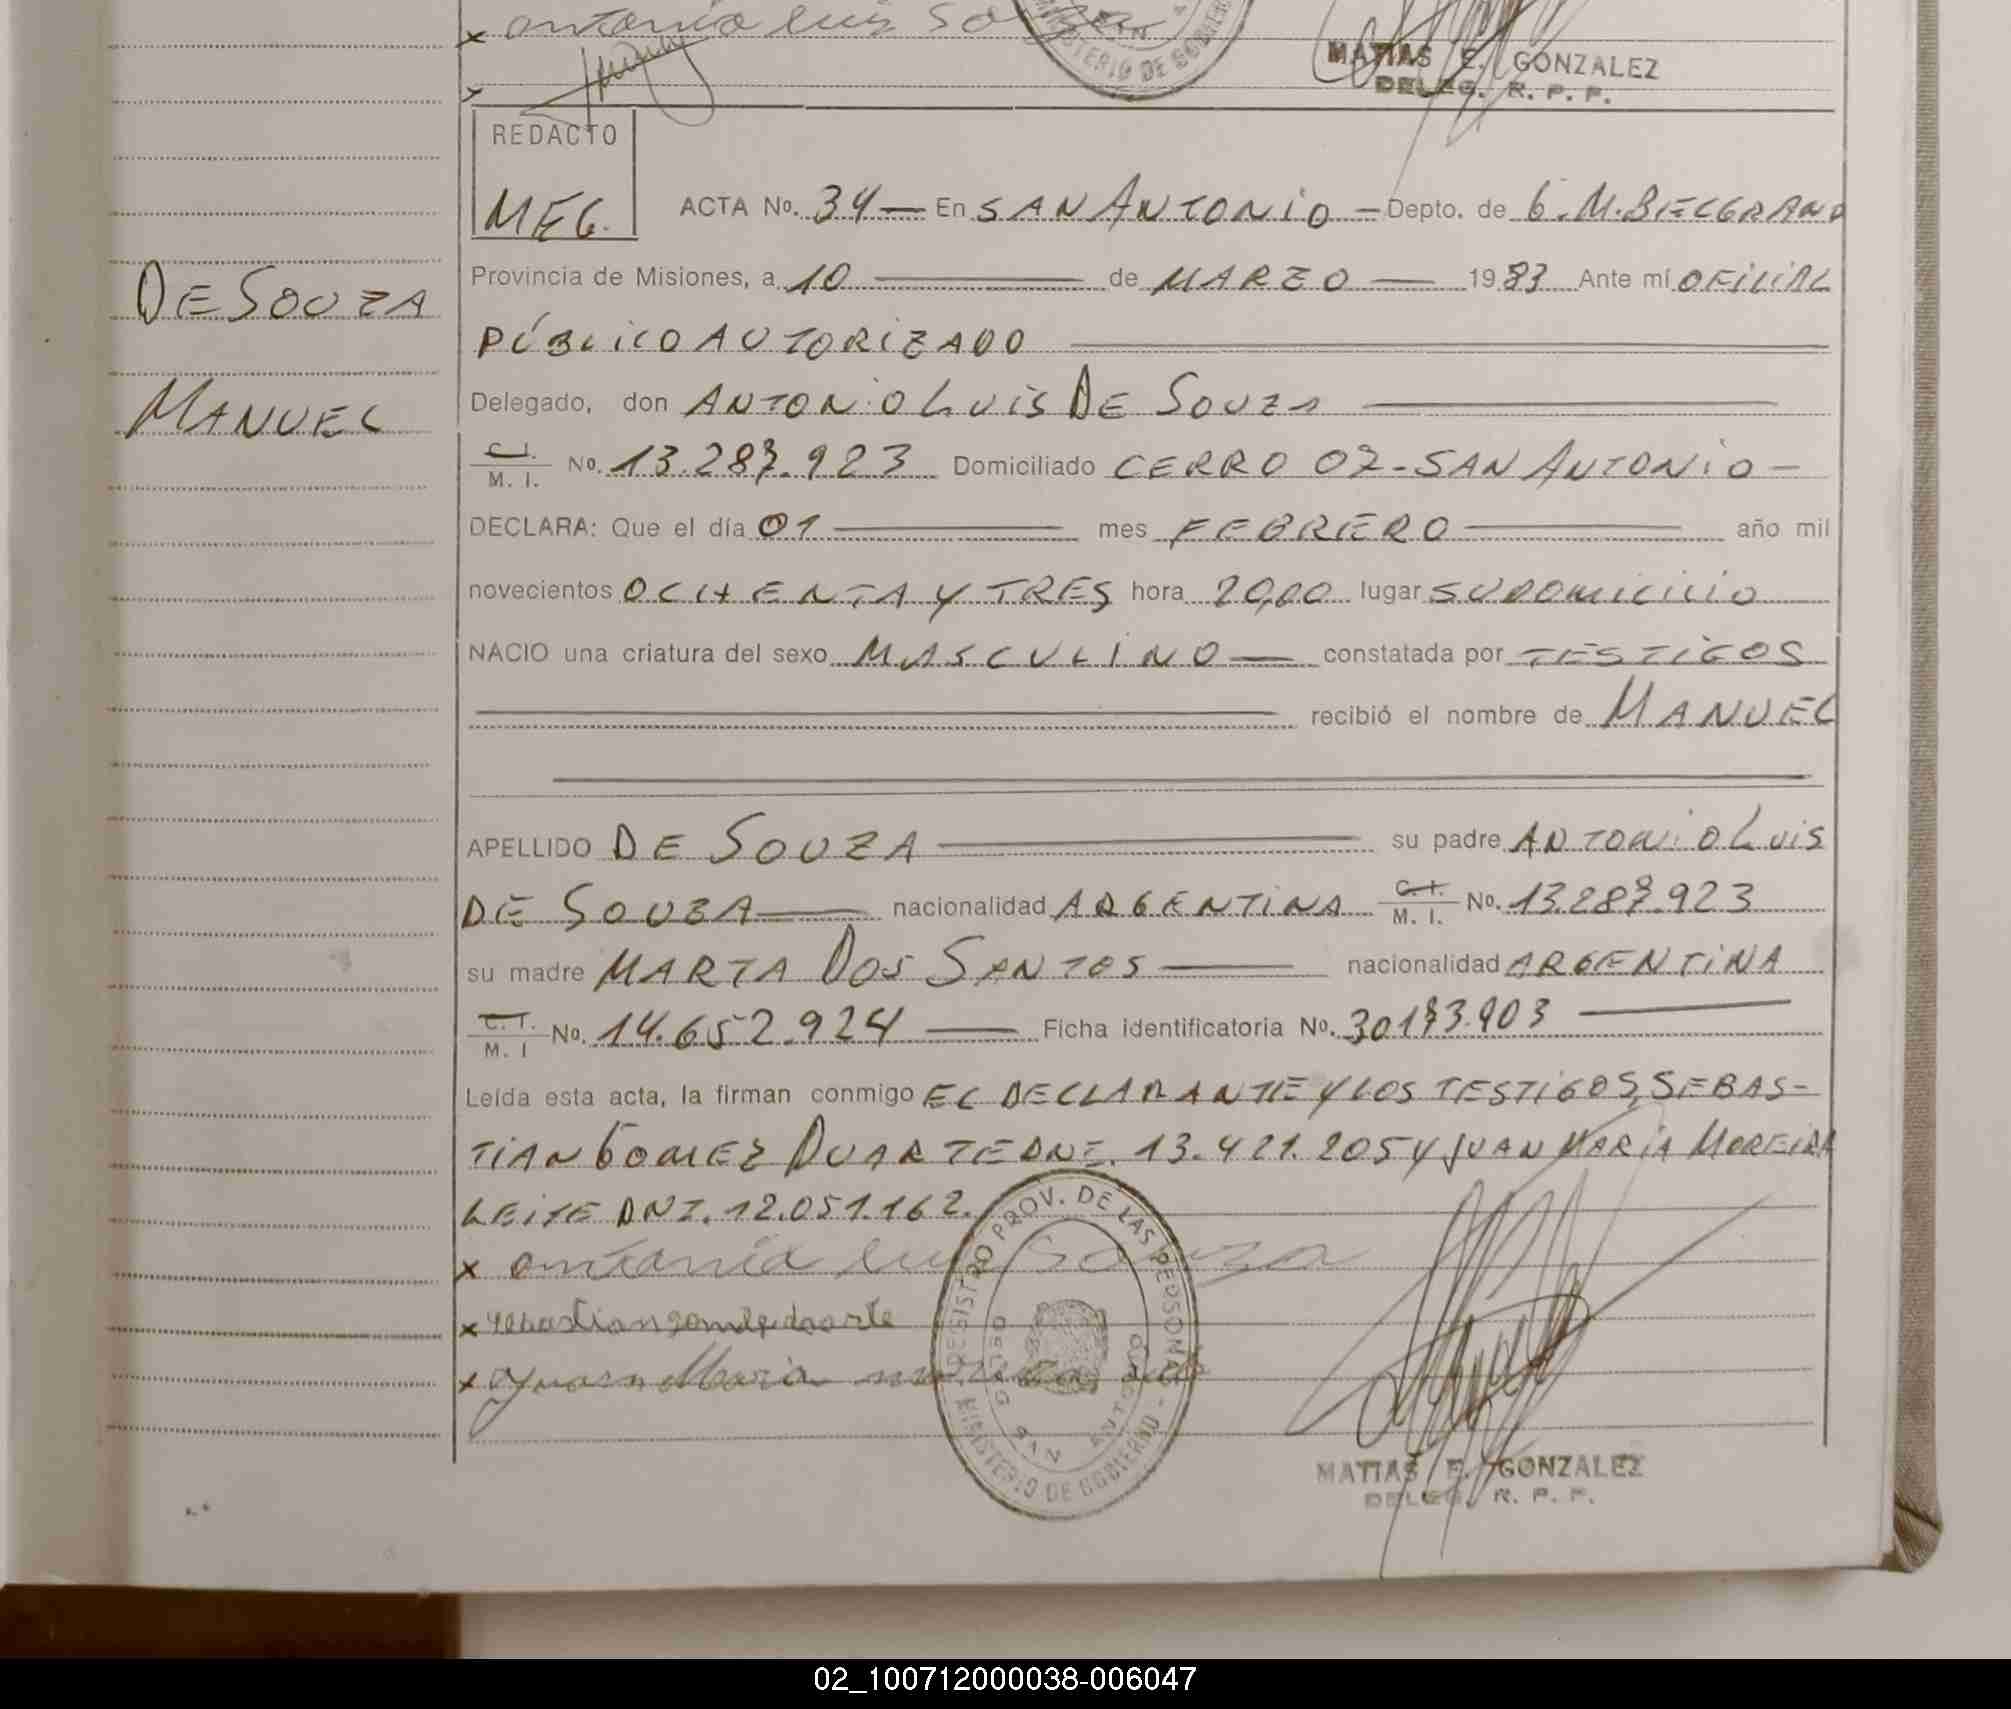 x antonio luis So
MINISTERIO DE GOBIERNO
MATIAS E. GONZALEZ
DELEG. R. P. P.
REDACTO
MEG.
ACTA No. 34 — En SAN ANTONIO — Depto. de G. M. BELGRANO
Provincia de Misiones, a 10 — de MARZO — 1983 Ante mí OFICIAL
PÚBLICO AUTORIZADO
DE SOUZA
MANUEL
Delegado, don ANTONIO LUIS DE SOUZA
C. I.
M. I. No. 13.287.923 Domiciliado CERRO 07 - SAN ANTONIO -
DECLARA: Que el día 01 — mes FEBRERO — año mil
novecientos OCHENTA Y TRES hora 20,00 lugar SU DOMICILIO
NACIO una criatura del sexo MASCULINO — constatada por TESTIGOS
recibió el nombre de MANUEL
APELLIDO DE SOUZA — su padre ANTONIO LUIS
DE SOUZA — nacionalidad ARGENTINA C. I. M. I. No. 13.287.923
su madre MARTA DOS SANTOS — nacionalidad ARGENTINA
C. I. M. I No. 14.652.924 — Ficha identificatoria No. 30173.903 —
Leída esta acta, la firman conmigo EL DECLARANTE Y LOS TESTIGOS, SEBAS-
TIAN GOMEZ DUARTE DNI. 13.421.205 Y JUAN MARIA MOREIRA
LEITE DNI. 12.051.162.
x antonio luis Souza
x sebastian gomez duarte
x Juan Maria
REGISTRO PROV. DE LAS PERSONAS - MINISTERIO DE GOBIERNO -
SAN ANTONIO
MATIAS E. GONZALEZ
DELEG. R. P. P.
02_100712000038-006047